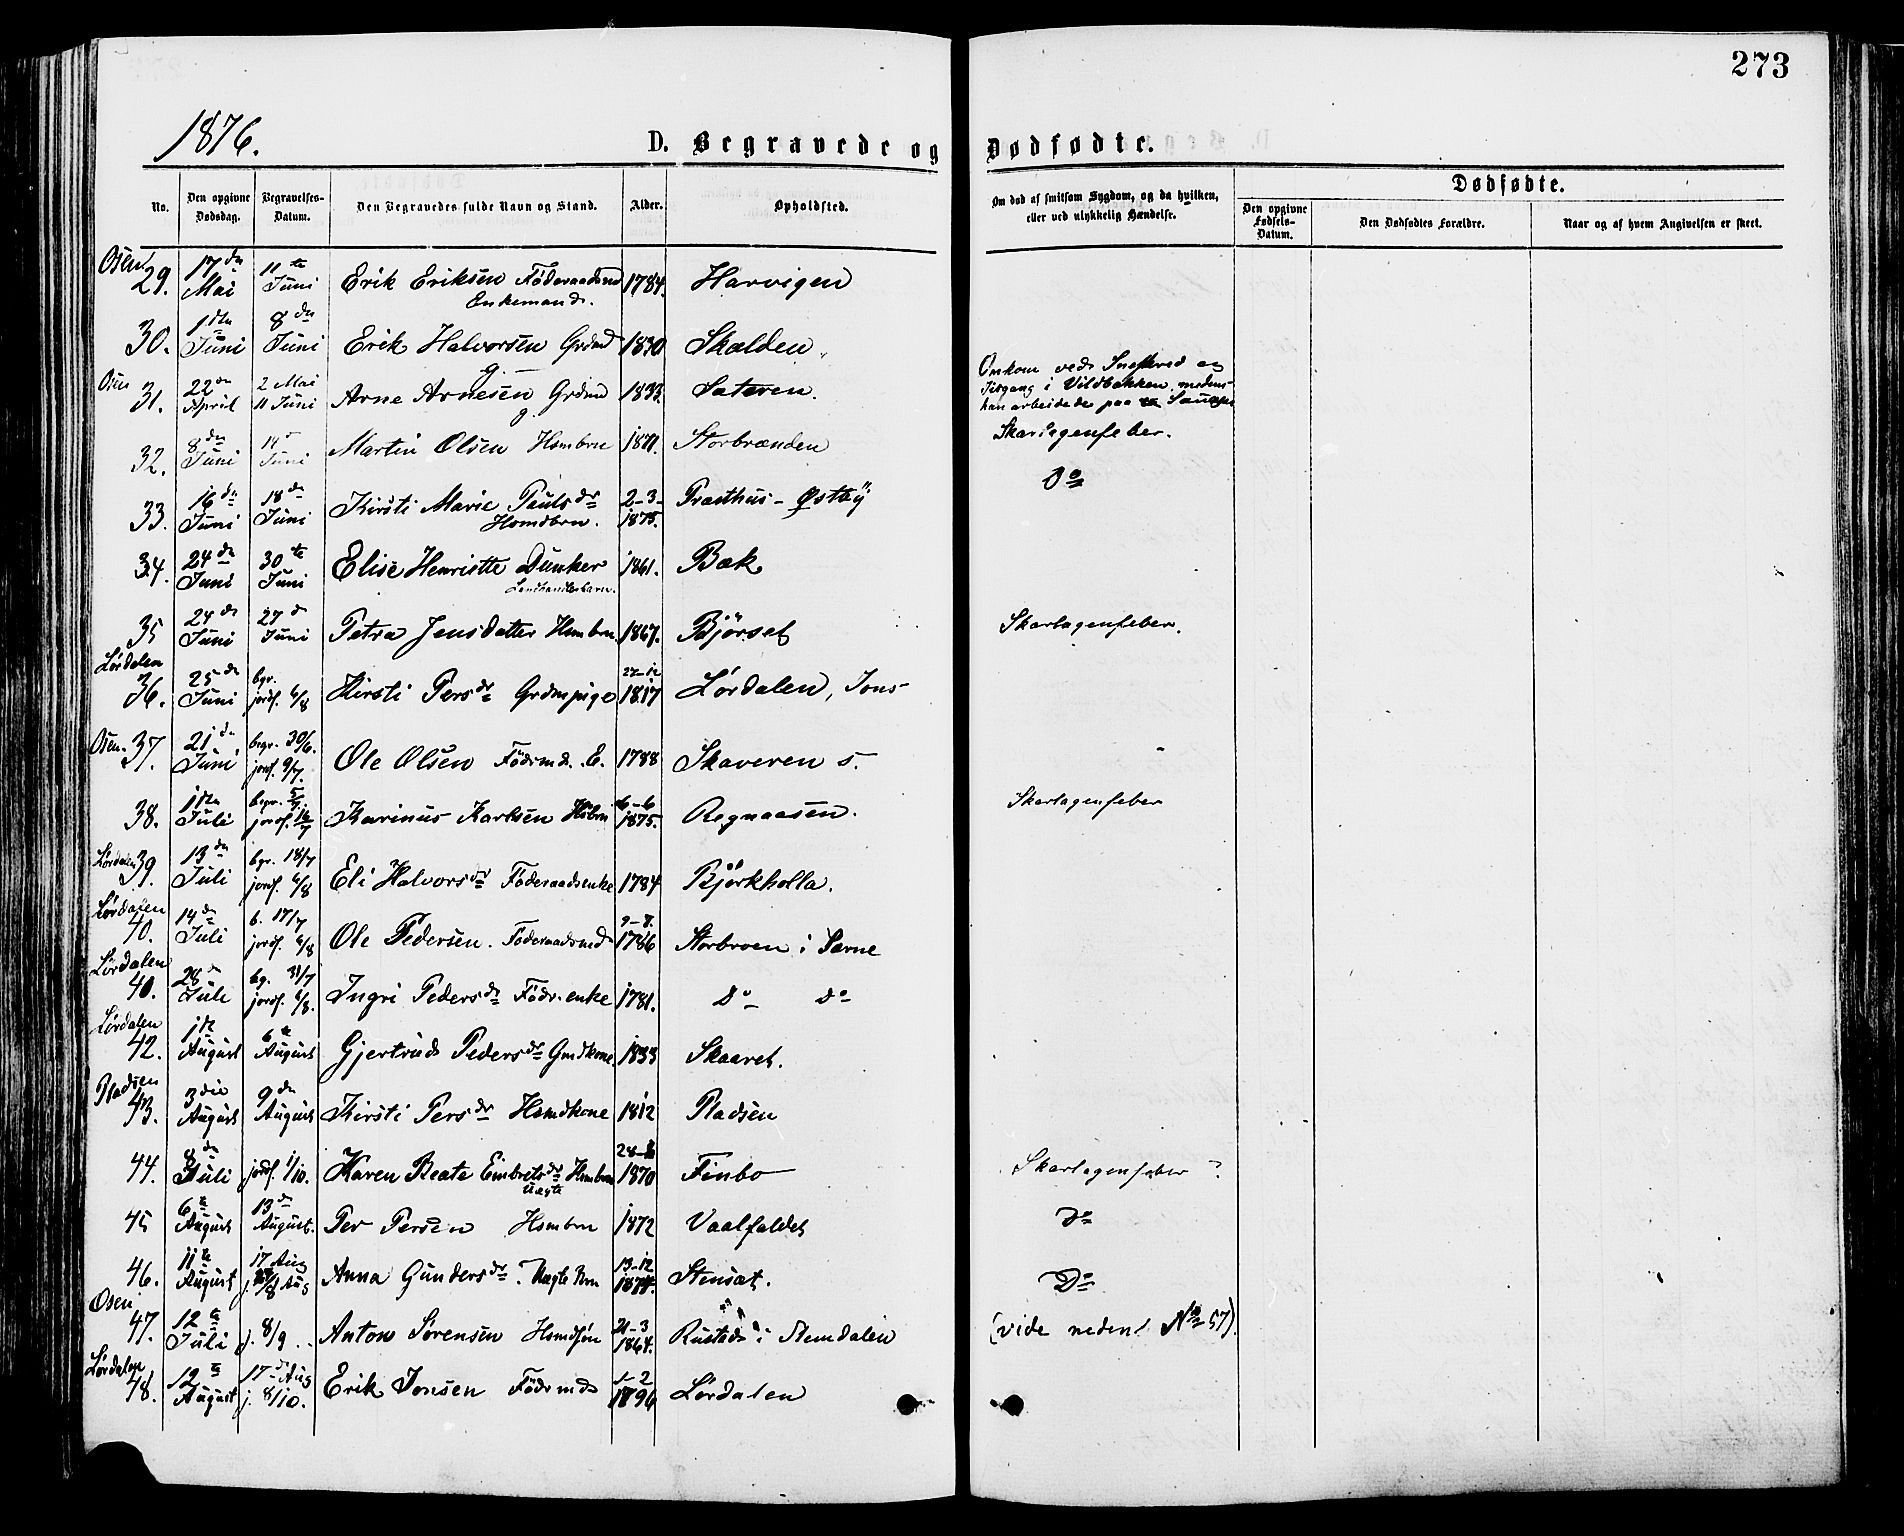 273
1876.
D. Begravede og Dødfødte.
No. Den opgivne Dødsdag. Begravelses-Datum. Den Begravedes fulde Navn og Stand. Alder. Opholdsted. Om død af smitsom Sygdom, og da hvilken, eller ved ulykkelig Hændelse. Dødfødte.
Den opgivne Fødsels-Datum. Den Dødfødtes Forældre. Naar og af hvem Angivelsen er skeet.
Osen 29. 17de Mai 11te Juni Erik Eriksen Föderaadsmd Enkemand. 1784. Harvigen
30. 1ste Juni 8de Juni Erik Halvorsen Grdmd g. 1830 Skælden
Osen 31. 22de April 2 Mai 11 Juni Arne Arnesen Grdmd g. 1833. Sæteren. Omkom ved Sneskred og Isgang i Vildbækken, medens han arbeidede paa
32. 8de Juni 14d Juni Martin Olsen Hsmbrn 1871. Storbrænden Skarlagenfeber.
33. 16de Juni 18de Juni Kirsti Marie Paulsdr Hsmdbrn. 2-3-1875. Præsthus-Østby Do
34. 24de Juni 30te Juni Elise Henriette Dunker Landhandlerbarn. 1861. Bæk
35 24de Juni 27d Juni Petra Jensdatter Hsmbrn 1867. Bjørset Skarlagenfeber.
Lørdalen 36. 25de Juni bgr. jordf. 6/8 Kirsti Persdr Grdmpige 27-12 1817 Lørdalen, Jons-
Osen. 37. 21de Juni begr. 30/6. jordf. 9/7. Ole Olsen Födrmd. E. 1788 Skaveren s.
38. 1ste Juli begr. 5/7. jordf. 16/7 Karinus Karlsen Hsbrn 6-6 1875. Regnaasen. Skarlagenfeber
Lørdalen 39. 13de Juli bgr. 18/7 jordf. 6/8 Eli Halvorsdr Föderaadsenke 1784 Björkholla.
Lørdalen 40. 14de Juli b. 17/7 jordf. 6/8 Ole Pedersen. Föderaadsmd 9-8. 1786 Storbroen i Særne
Lørdalen 40. 28d Juli bg. 31/7 jordf. 6/8. Ingri Pedersdr Födr.enke 1781. Do Do
Lørdalen 42. 1ste August 6te August Gjertrud Pedersdr Gmdkone. 1833 Skaaret.
Pladsen 43. 3die August 9de August Kirsti Persdr Hsmdkone 1812 Pladsen
44. 8de Juli jordf. 1/10. Karen Beate Embretsdr Hsmbrn uægte 28-8 1870 Finbo Skarlagenfeber?
45 6te August 13de August. Per Persen Hsmbrn 1872 Vaalfaldet Do
46. 11te August 17 Aug Anna Gundersdr. Uægte Brn 13-12 1874. Stensæt. Do
Osen 47. 12te Juli j. 8/9 Anton Sørensen Hsmdsön 21-3 1864. Rustad i Slemdalen (vide nedenf. No 57).
Lørdalen 48. 12te August 17de Aug j. 8/10. Erik Jonsen Födrmd 1-2 1796 Lørdalen